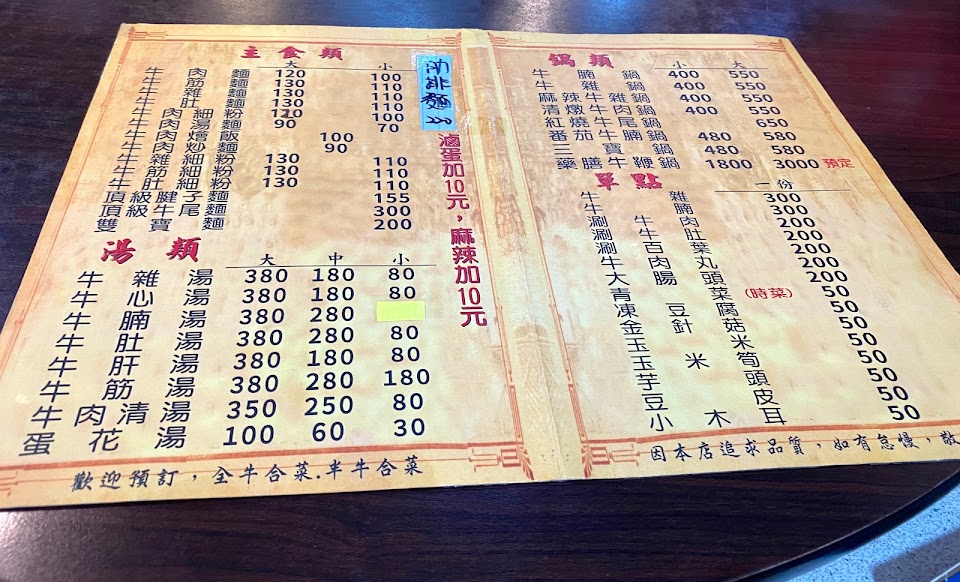 主食類
大 小
牛肉麵 120 100
牛筋麵 130 110
牛雜麵 130 110
牛肚麵 130 110
牛肉細粉 120 100
牛肉湯麵 90 70
牛肉燴飯 100
牛肉炒麵 90
牛雜細粉 130 110
牛筋細粉 130 110
牛肚細粉 130 110
頂級腱子麵 155
頂級牛尾麵 300
雙寶麵 200
湯類
大 中 小
牛雜湯 380 180 80
牛心湯 380 180 80
牛腩湯 380 280
牛肚湯 380 280 80
牛肝湯 380 180 80
牛筋湯 380 280 180
牛肉清湯 350 250 80
蛋花湯 100 60 30
歡迎預訂，全牛合菜.半牛合菜
排麵
滷蛋加10元，麻辣加10元
鍋類
小 大
牛腩鍋 400 550
牛雜鍋 400 550
麻辣牛雜鍋 400 550
清燉牛肉鍋 400 550
紅燒牛尾鍋 650
番茄牛腩鍋 480 580
三寶鍋 480 580
藥膳牛鞭鍋 1800 3000 預定
單點
一份
牛雜 300
牛腩 300
涮牛肉 200
涮牛肚 200
涮百葉 200
牛肉丸 200
大腸頭 200
青菜(時菜) 50
凍豆腐 50
金針菇 50
玉米 50
玉米筍 50
芋頭 50
豆皮 50
小木耳 50
因本店追求品質，如有怠慢，敬